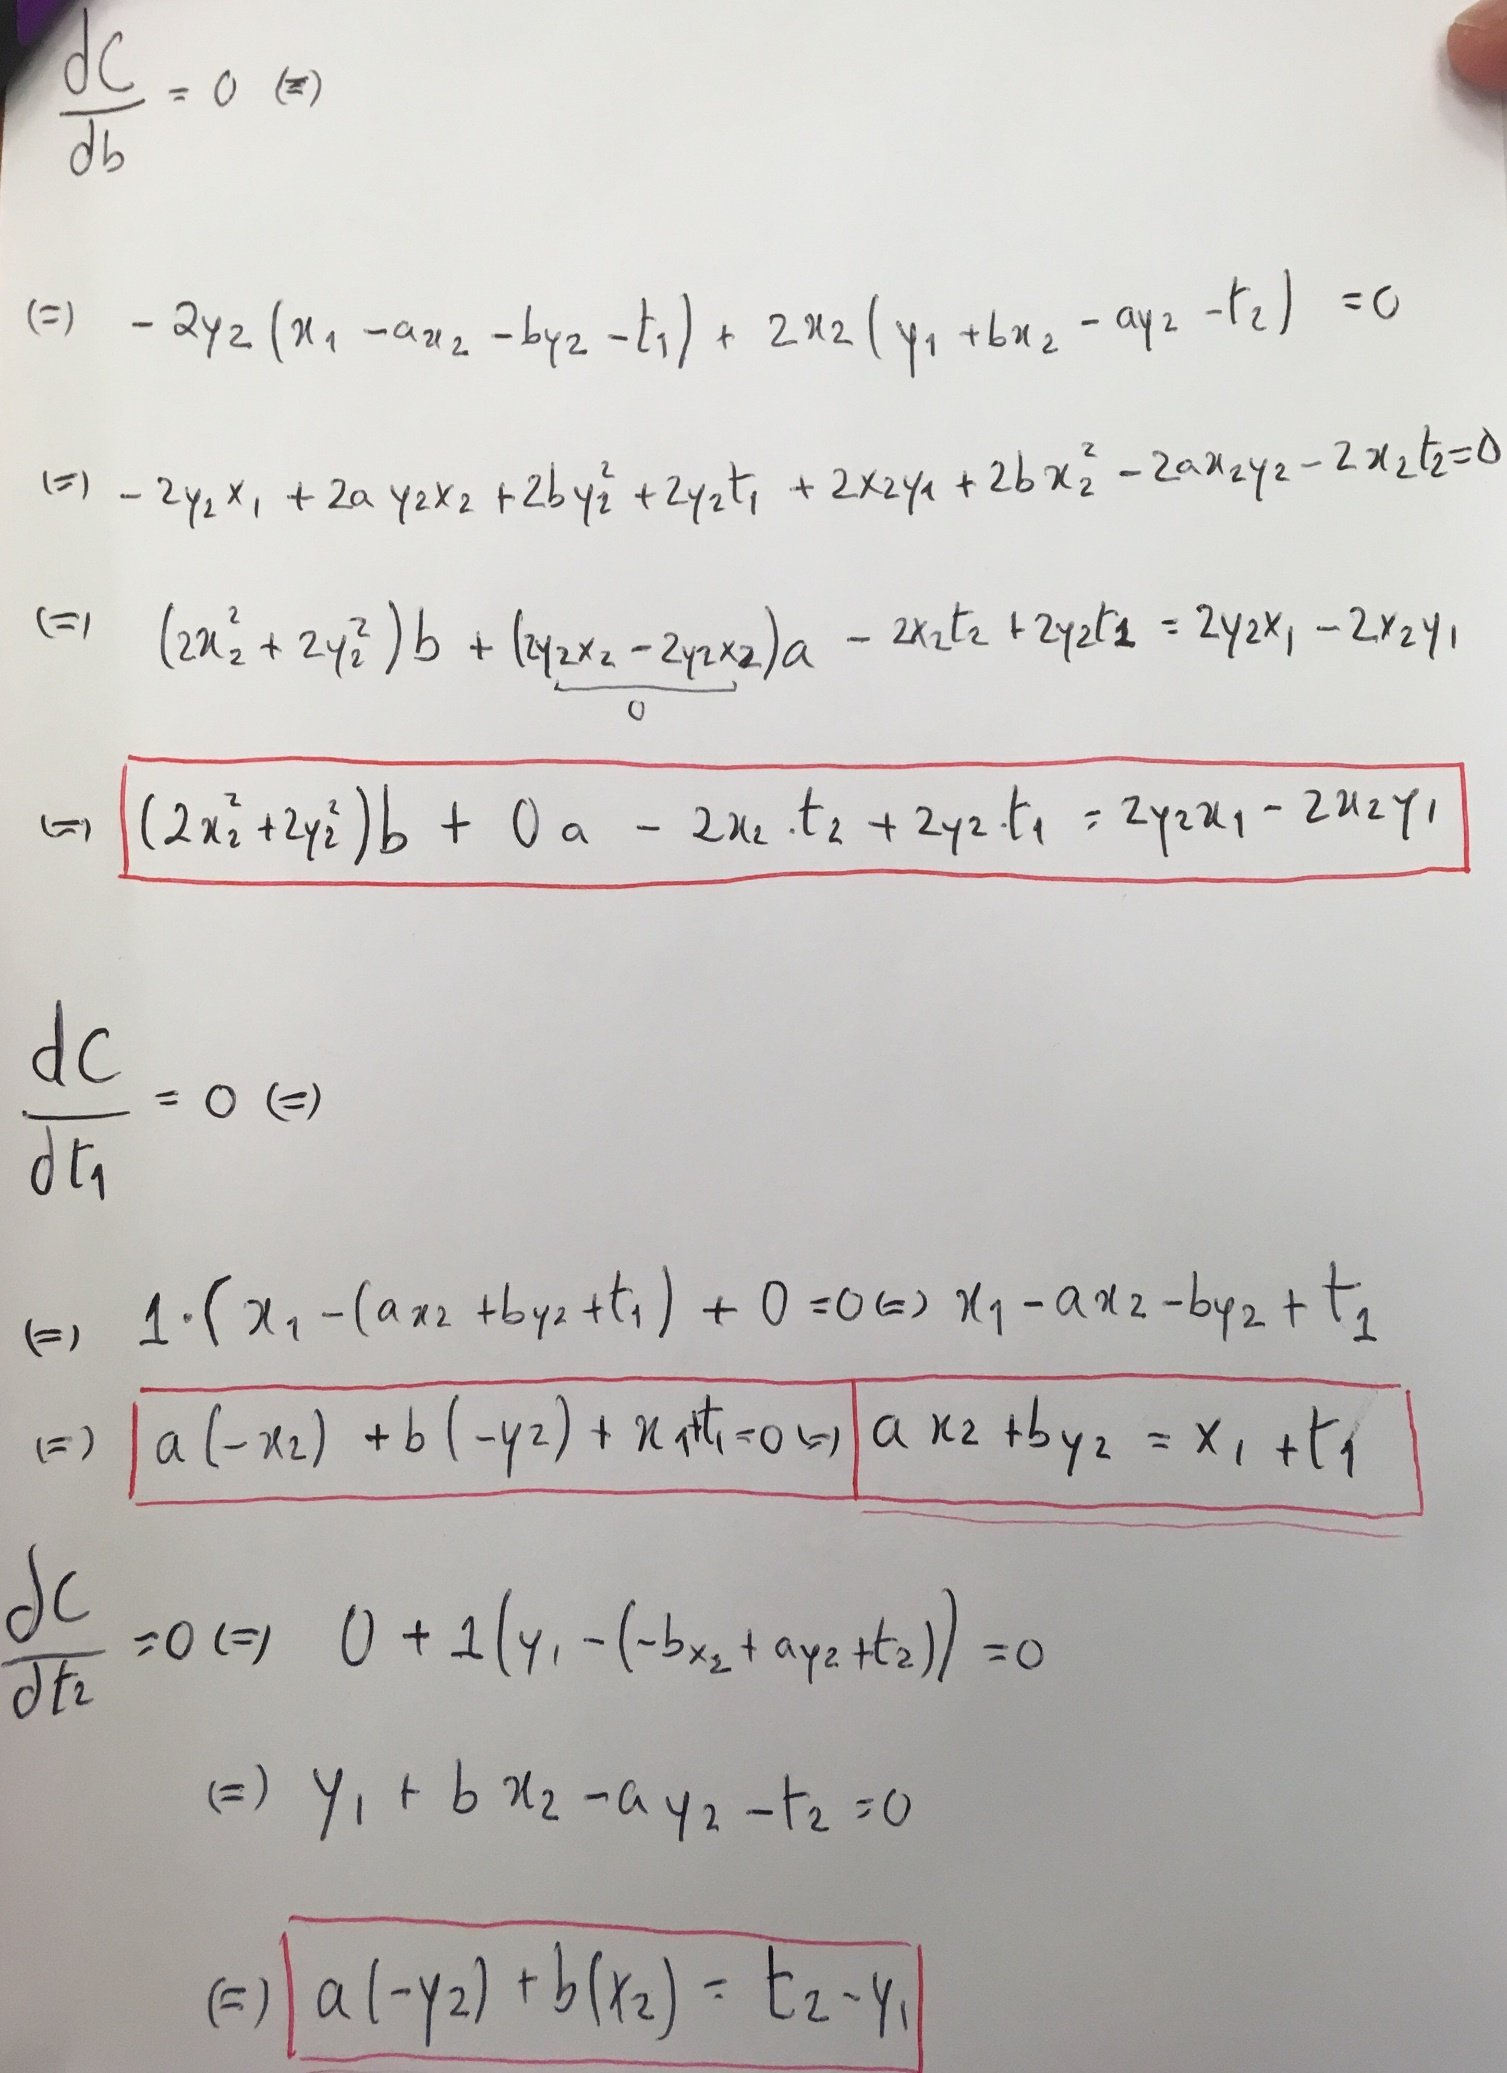 dC/db = 0 (=)
(=) - 2y₂ (x₁ - ax₂ - by₂ - t₁) + 2x₂ (y₁ + bx₂ - ay₂ - t₂) = 0
(=) - 2y₂x₁ + 2a y₂x₂ + 2by₂² + 2y₂t₁ + 2x₂y₁ + 2bx₂² - 2ax₂y₂ - 2x₂t₂ = 0
(=) (2x₂² + 2y₂²)b + (2y₂x₂ - 2y₂x₂)a - 2x₂t₂ + 2y₂t₁ = 2y₂x₁ - 2x₂y₁
0
(=) (2x₂² + 2y₂²)b + 0a - 2x₂.t₂ + 2y₂.t₁ = 2y₂x₁ - 2x₂y₁
dC/dt₁ = 0 (=)
(=) 1·(x₁ - (ax₂ + by₂ + t₁) + 0 = 0 (=) x₁ - ax₂ - by₂ + t₁
(=) a(-x₂) + b(-y₂) + x₁ + t₁ = 0 (=) ax₂ + by₂ = x₁ + t₁
dC/dt₂ = 0 (=) 0 + 1(y₁ - (-bx₂ + ay₂ + t₂)) = 0
(=) y₁ + bx₂ - ay₂ - t₂ = 0
(=) a(-y₂) + b(x₂) = t₂ - y₁